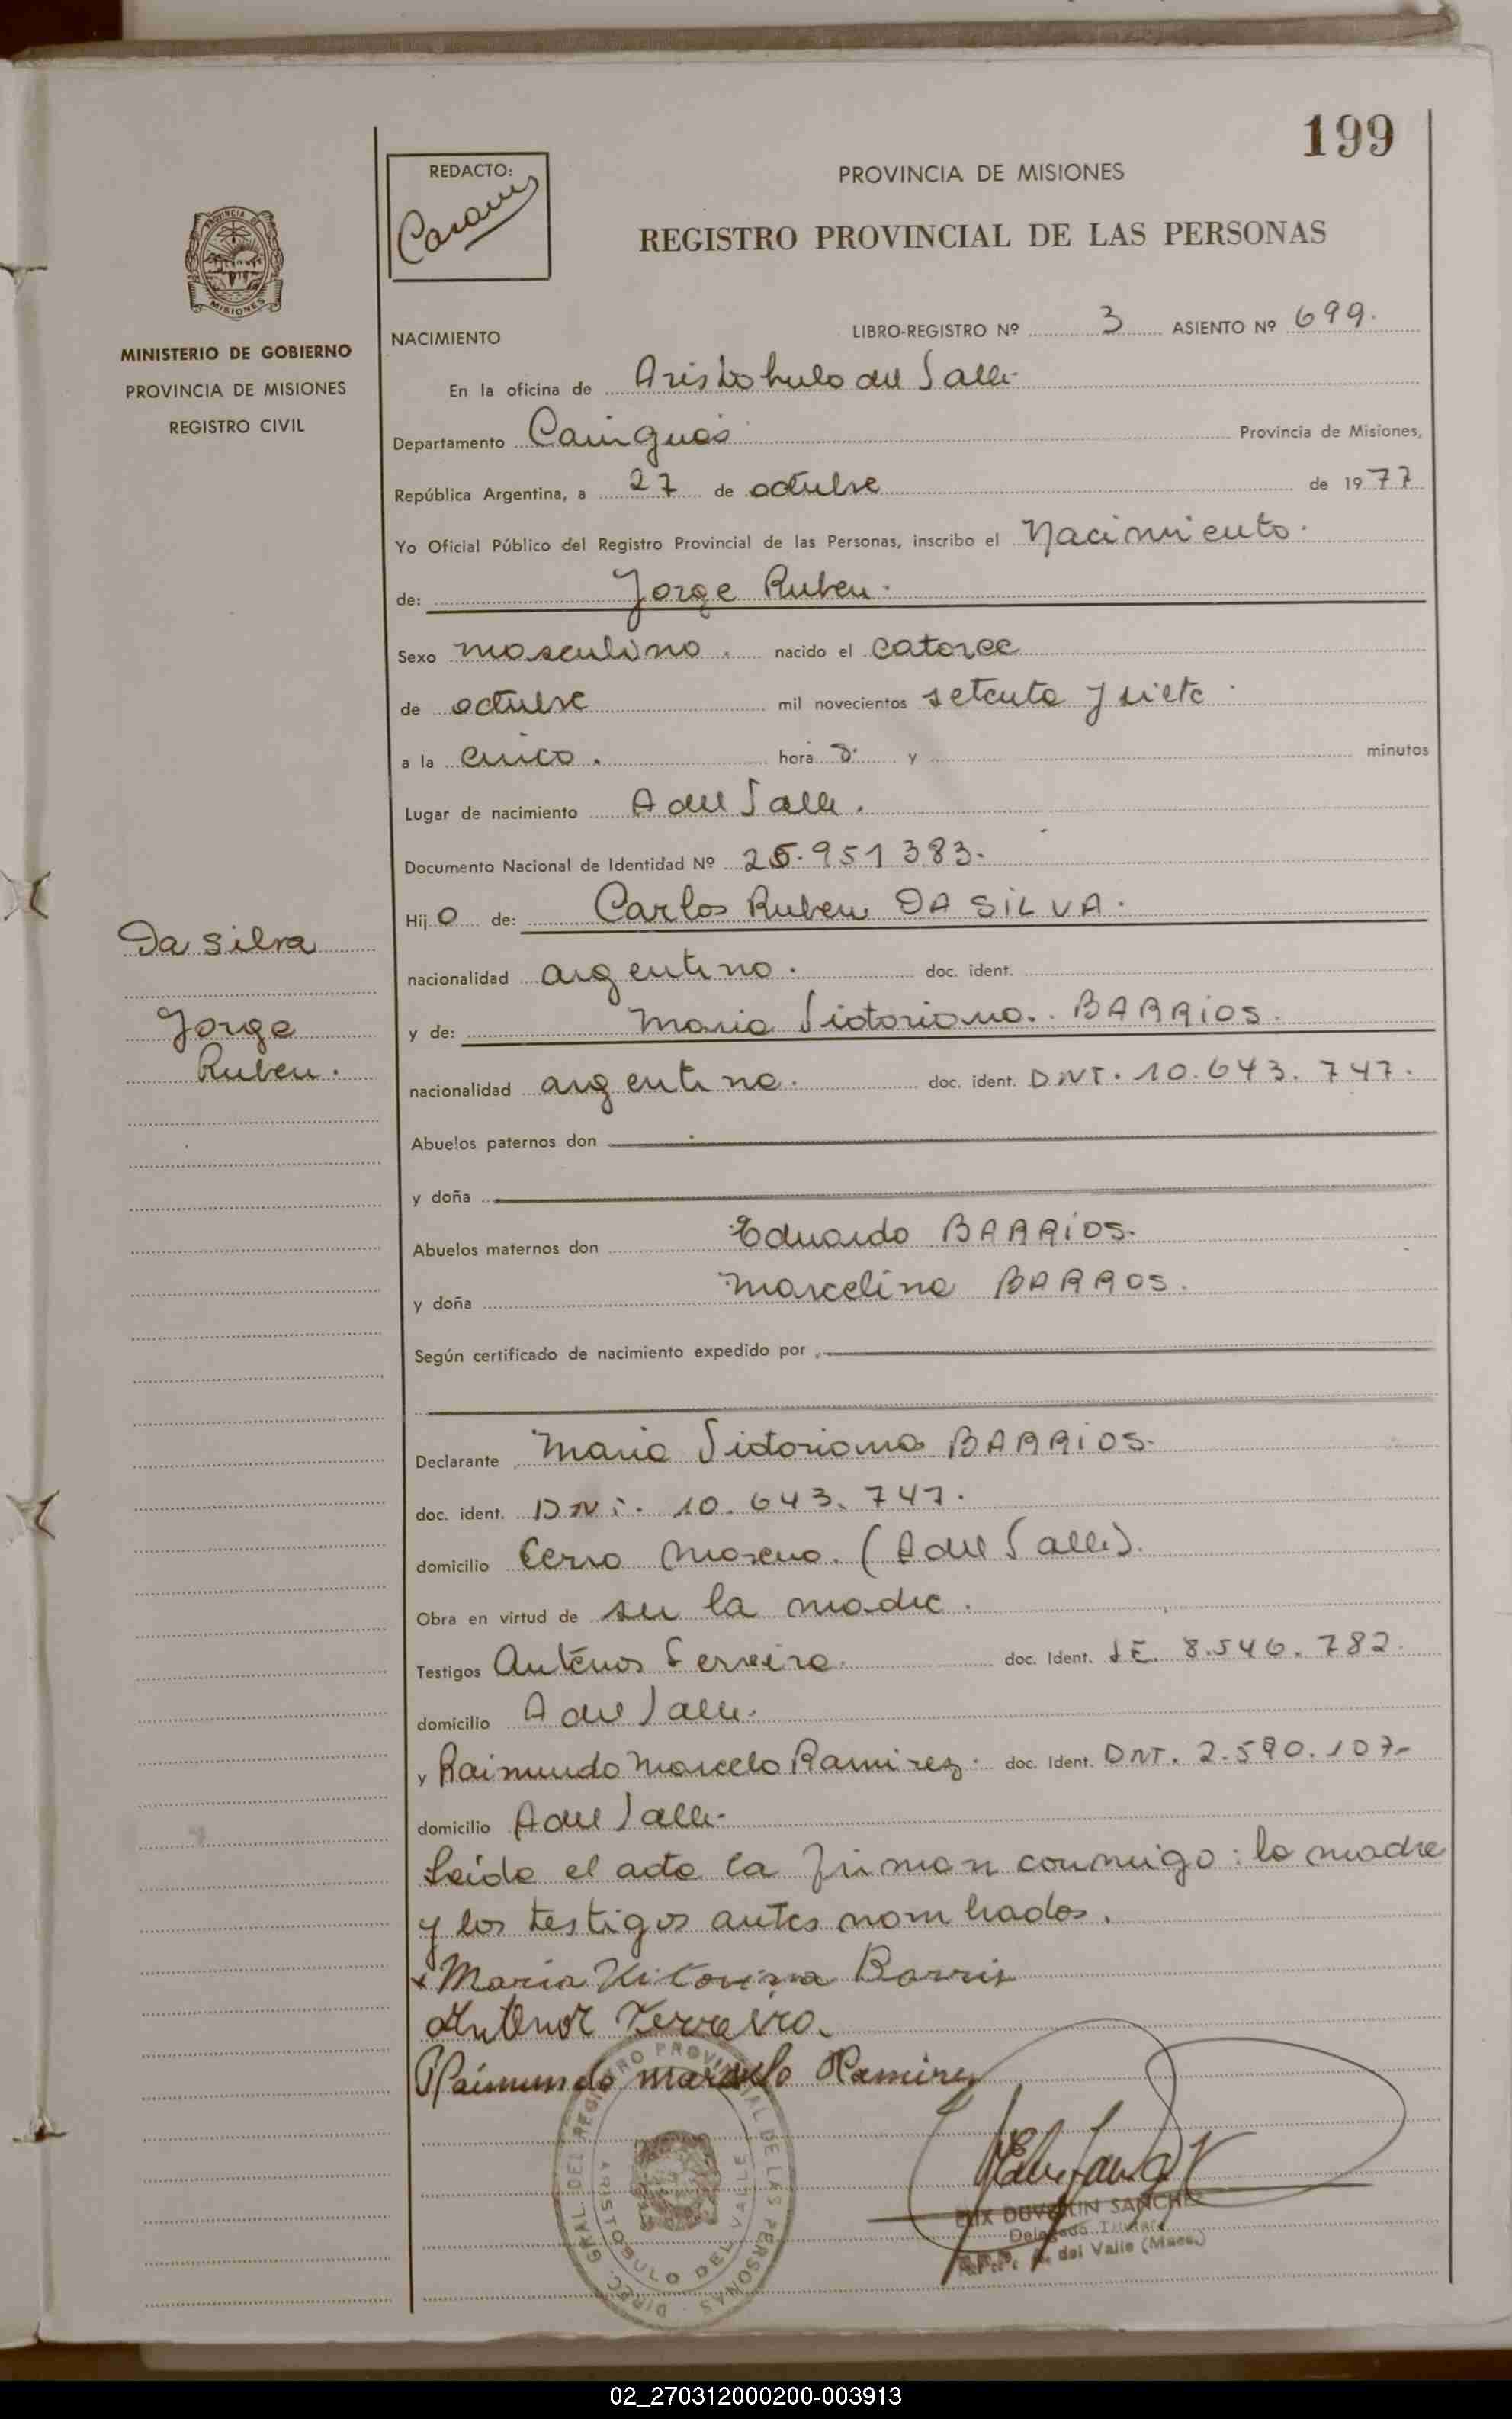 199
REDACTO:
PROVINCIA DE MISIONES
REGISTRO PROVINCIAL DE LAS PERSONAS
PROVINCIA DE
MISIONES
MINISTERIO DE GOBIERNO
PROVINCIA DE MISIONES
REGISTRO CIVIL
NACIMIENTO LIBRO-REGISTRO Nº 3 ASIENTO Nº 699.
En la oficina de Aristobulo del Valle
Departamento Cainguás Provincia de Misiones,
República Argentina, a 27 de octubre de 1977
Yo Oficial Público del Registro Provincial de las Personas, inscribo el Nacimiento.
de: Jorge Ruben.
Sexo masculino. nacido el catorce
de octubre mil novecientos setenta y siete.
a la cinco. hora s. y minutos
Lugar de nacimiento A del Valle.
Documento Nacional de Identidad Nº 25.951383.
Hij o de: Carlos Ruben DA SILVA.
nacionalidad argentino. doc. ident.
y de: Maria Victoriana. BARRIOS.
nacionalidad argentina. doc. ident. DNI. 10.643.747.
Abuelos paternos don
y doña
Abuelos maternos don Eduardo BARRIOS.
y doña Marcelina BARROS.
Según certificado de nacimiento expedido por
Declarante Maria Victoriana BARRIOS.
doc. ident. DNI. 10.643.747.
domicilio Cerro Moreno. (A del Valle).
Obra en virtud de ser la madre.
Testigos Antenor Ferreira. doc. Ident. LE. 8.546.782.
domicilio A del Valle.
y Raimundo Marcelo Ramirez. doc. Ident. DNI. 2.590.107-
domicilio A del Valle.
Leida el acta la firman conmigo: la madre
y los testigos antes nombrados.
x Maria Vitorina Barrios
Antenor Ferreira.
Raimundo marselo Ramirez
Da Silva
Jorge
Ruben.
DIREC. GRAL. DEL REGISTRO PROVINCIAL DE LAS PERSONAS
ARISTOBULO DEL VALLE
SANCHEZ
Delegado Titular
del Valle (Mnes.)
02_270312000200-003913